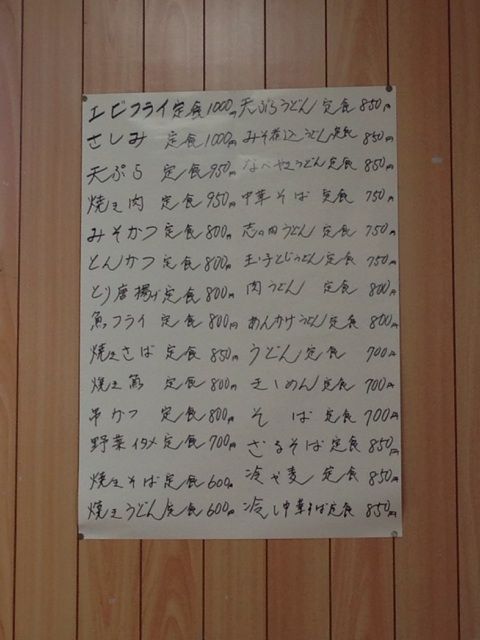 エビフライ定食1000円
さしみ 定食1000円
天ぷら 定食950円
焼き肉 定食950円
みそかつ定食800円
とんかつ 定食800円
とり唐揚げ定食800円
魚フライ 定食800円
焼きさば 定食850円
焼き魚 定食800円
串かつ 定食800円
野菜イタメ定食700円
焼きそば定食600円
焼きうどん定食600円
天ぷらうどん 定食850円
みそ煮込うどん定食850円
なべやきうどん定食850円
中華そば 定食750円
志の田うどん定食750円
玉子とじうどん定食750円
肉うどん 定食800円
あんかけうどん定食800円
うどん定食 700円
きしめん定食700円
そば定食700円
ざるそば定食850円
冷や麦 定食850円
冷し中華そば定食850円